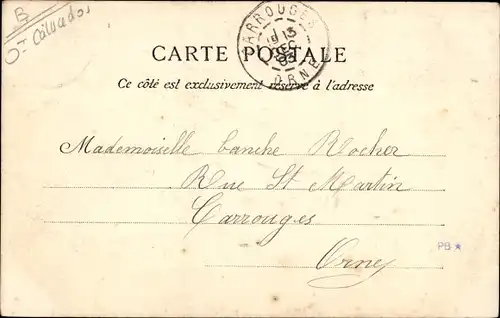 B
Dt Calvados
CARROUGES
13
DEC
03
ORNE
CARTE POSTALE
Ce côté est exclusivement réservé à l'adresse
Mademoiselle Canche Rocher
Rue St Martin
Carrouges
Orne
PB ★